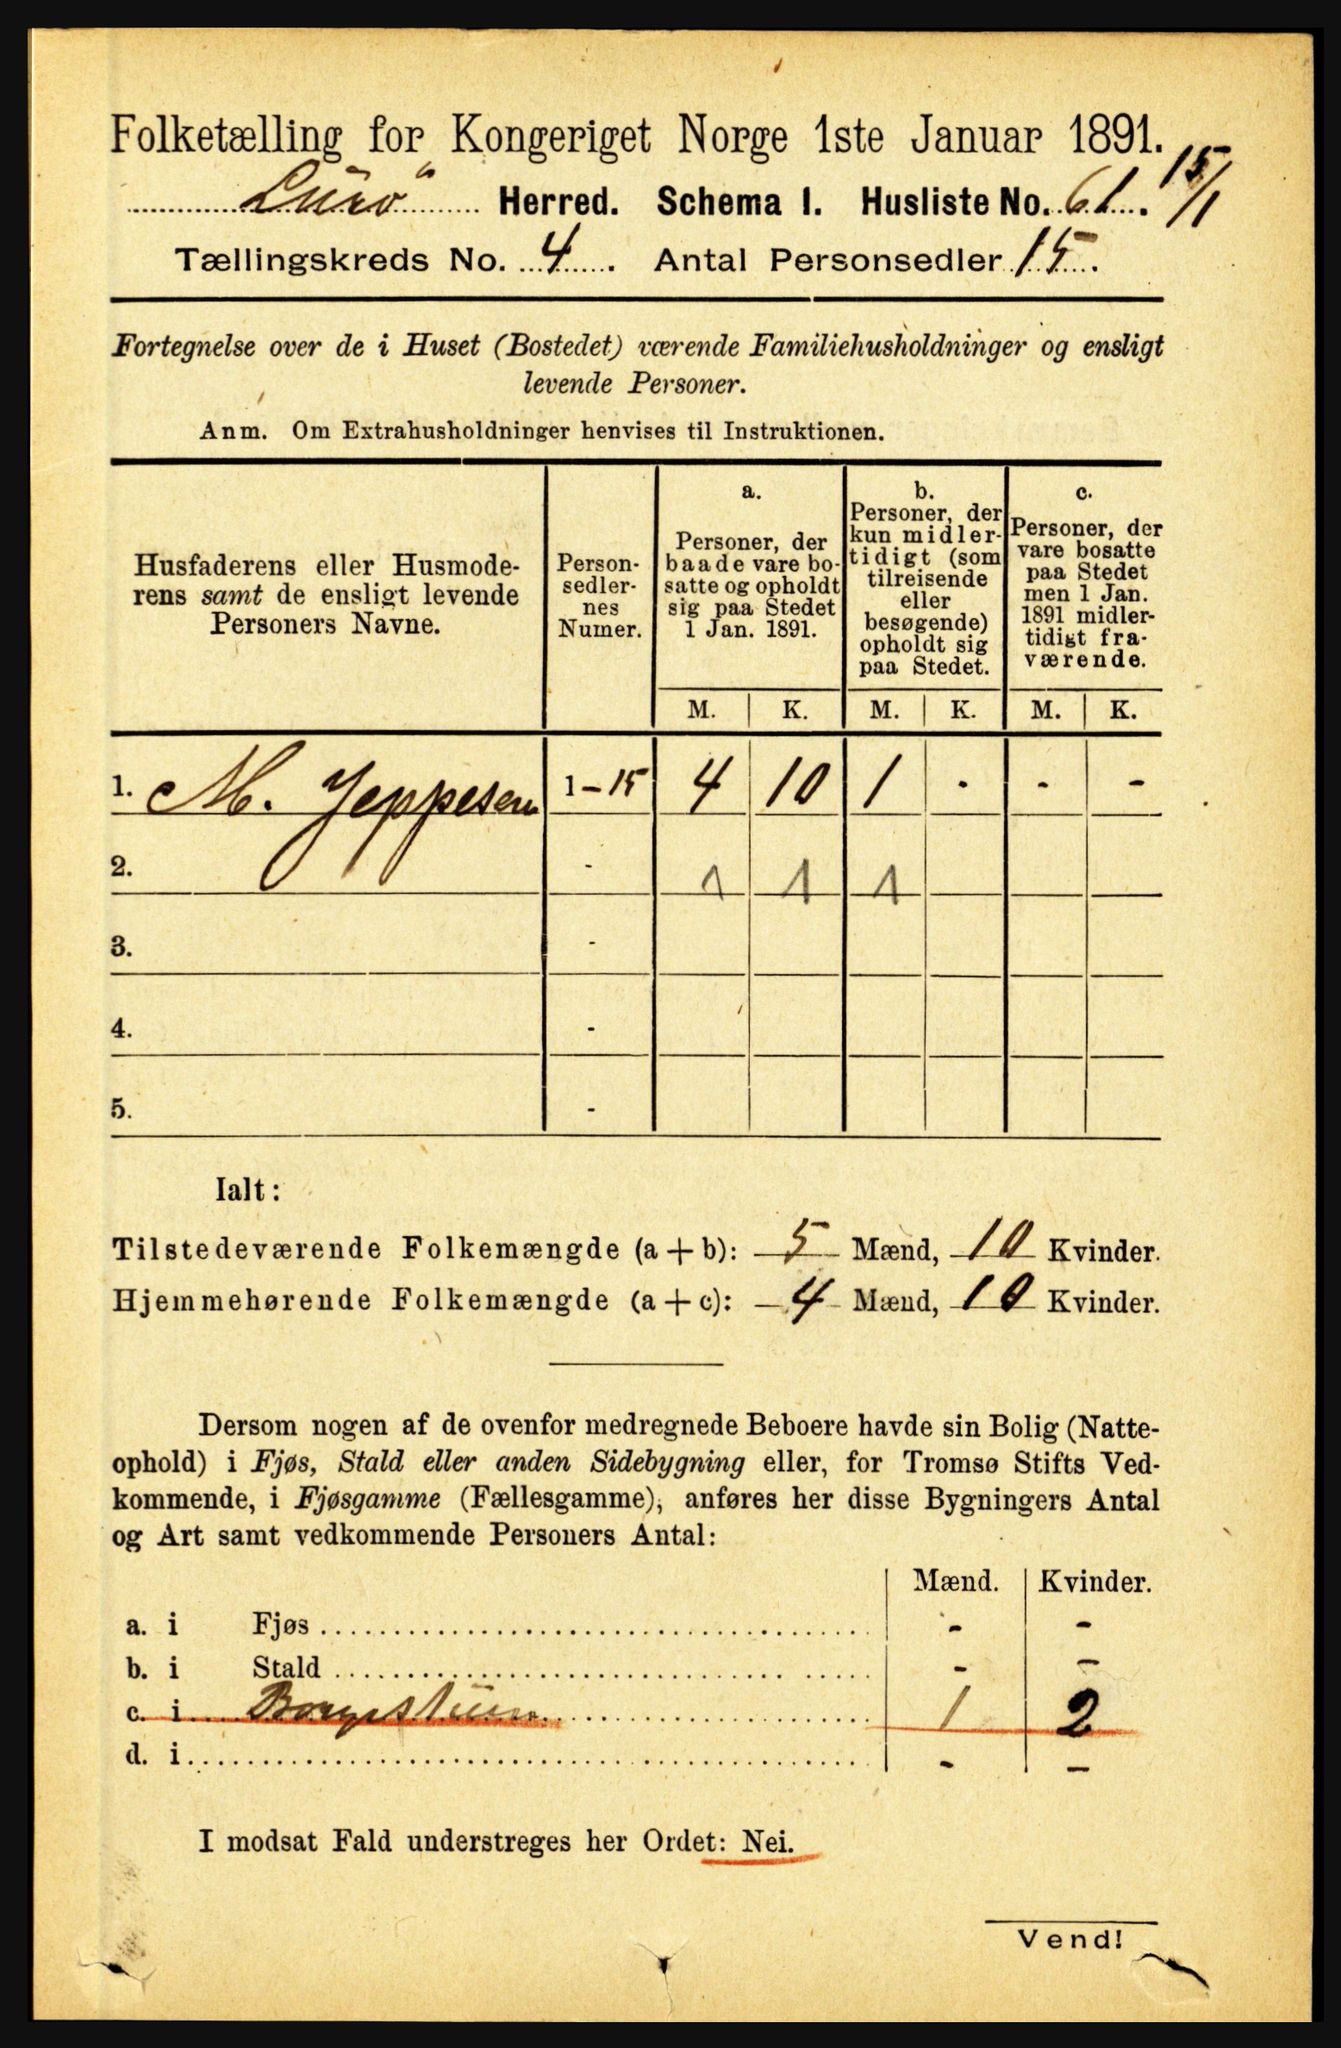 Folketælling for Kongeriget Norge 1ste Januar 1891.
Lurø Herred. Schema I. Husliste No. 61. 15/1
Tællingskreds No. 4. Antal Personsedler 15.
Fortegnelse over de i Huset (Bostedet) værende Familiehusholdninger og ensligt
levende Personer.
Anm. Om Extrahusholdninger henvises til Instruktionen.
Husfaderens eller Husmode-
rens samt de ensligt levende
Personers Navne.
Person-
sedler-
nes
Numer.
a.
Personer, der
baade vare bo-
satte og opholdt
sig paa Stedet
1 Jan. 1891.
b.
Personer, der
kun midler-
tidigt (som
tilreisende
eller
besøgende)
opholdt sig
paa Stedet.
c.
Personer, der
vare bosatte
paa Stedet
men 1 Jan.
1891 midler-
tidigt fra-
værende.
M. K. M. K. M. K.
1. M. Jeppesen 1-15 4 10 1 - - -
2. - 1 1 1
3. -
4. -
5. -
Ialt:
Tilstedeværende Folkemængde (a + b): 5 Mænd, 10 Kvinder.
Hjemmehørende Folkemængde (a + c): 4 Mænd, 10 Kvinder.
Dersom nogen af de ovenfor medregnede Beboere havde sin Bolig (Natte-
ophold) i Fjøs, Stald eller anden Sidebygning eller, for Tromsø Stifts Ved-
kommende, i Fjøsgamme (Fællesgamme), anføres her disse Bygningers Antal
og Art samt vedkommende Personers Antal:
Mænd. Kvinder.
a. i Fjøs - -
b. i Stald - -
c. i 1 2
d. i - -
I modsat Fald understreges her Ordet: Nei.
Vend!